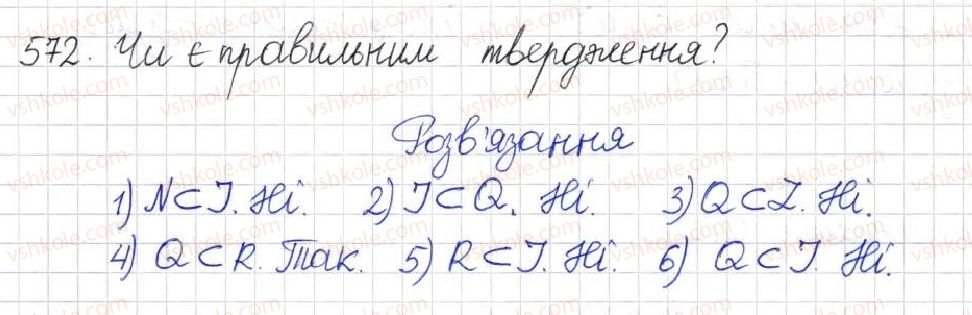 572. Чи є правильним твердження?
Розв'язання
1) N⊂I. Ні. 2) I⊂Q. Ні. 3) Q⊂Z. Ні.
4) Q⊂R. Так. 5) R⊂I. Ні. 6) Q⊂I. Ні.